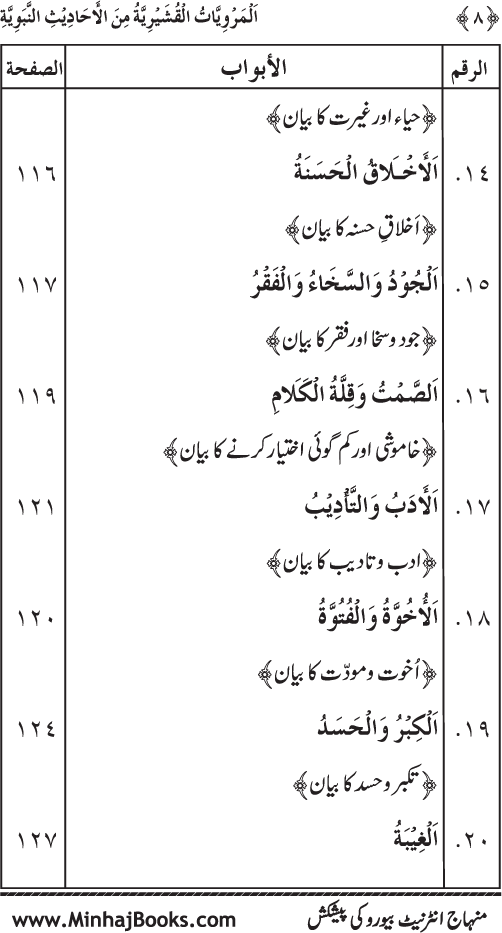 ﴿٨﴾ اَلْمَرْوِيَّاتُ الْقُشَيْرِيَّةُ مِنَ الْأَحَادِيْثِ النَّبَوِيَّةِ
الرقم الأبواب الصفحة
﴿حیاء اور غیرت کا بیان﴾
١٤. اَلْأَخْلَاقُ الْحَسَنَةُ ١١٦
﴿اَخلاقِ حسنہ کا بیان﴾
١٥. اَلْجُوْدُ وَالسَّخَاءُ وَالْفَقْرُ ١١٧
﴿جود و سخا اور فقر کا بیان﴾
١٦. اَلصَّمْتُ وَقِلَّةُ الْكَلَامِ ١١٩
﴿خاموشی اور کم گوئی اختیار کرنے کا بیان﴾
١٧. اَلْأَدَبُ وَالتَّأْدِيْبُ ١٢١
﴿ادب و تادیب کا بیان﴾
١٨. اَلْأُخُوَّةُ وَالْفُتُوَّةُ ١٢٠
﴿اُخوت و مودّت کا بیان﴾
١٩. اَلْكِبْرُ وَالْحَسَدُ ١٢٤
﴿تکبر و حسد کا بیان﴾
٢٠. اَلْغِيْبَةُ ١٢٧
منہاج انٹرنیٹ بیورو کی پیشکش www.MinhajBooks.com